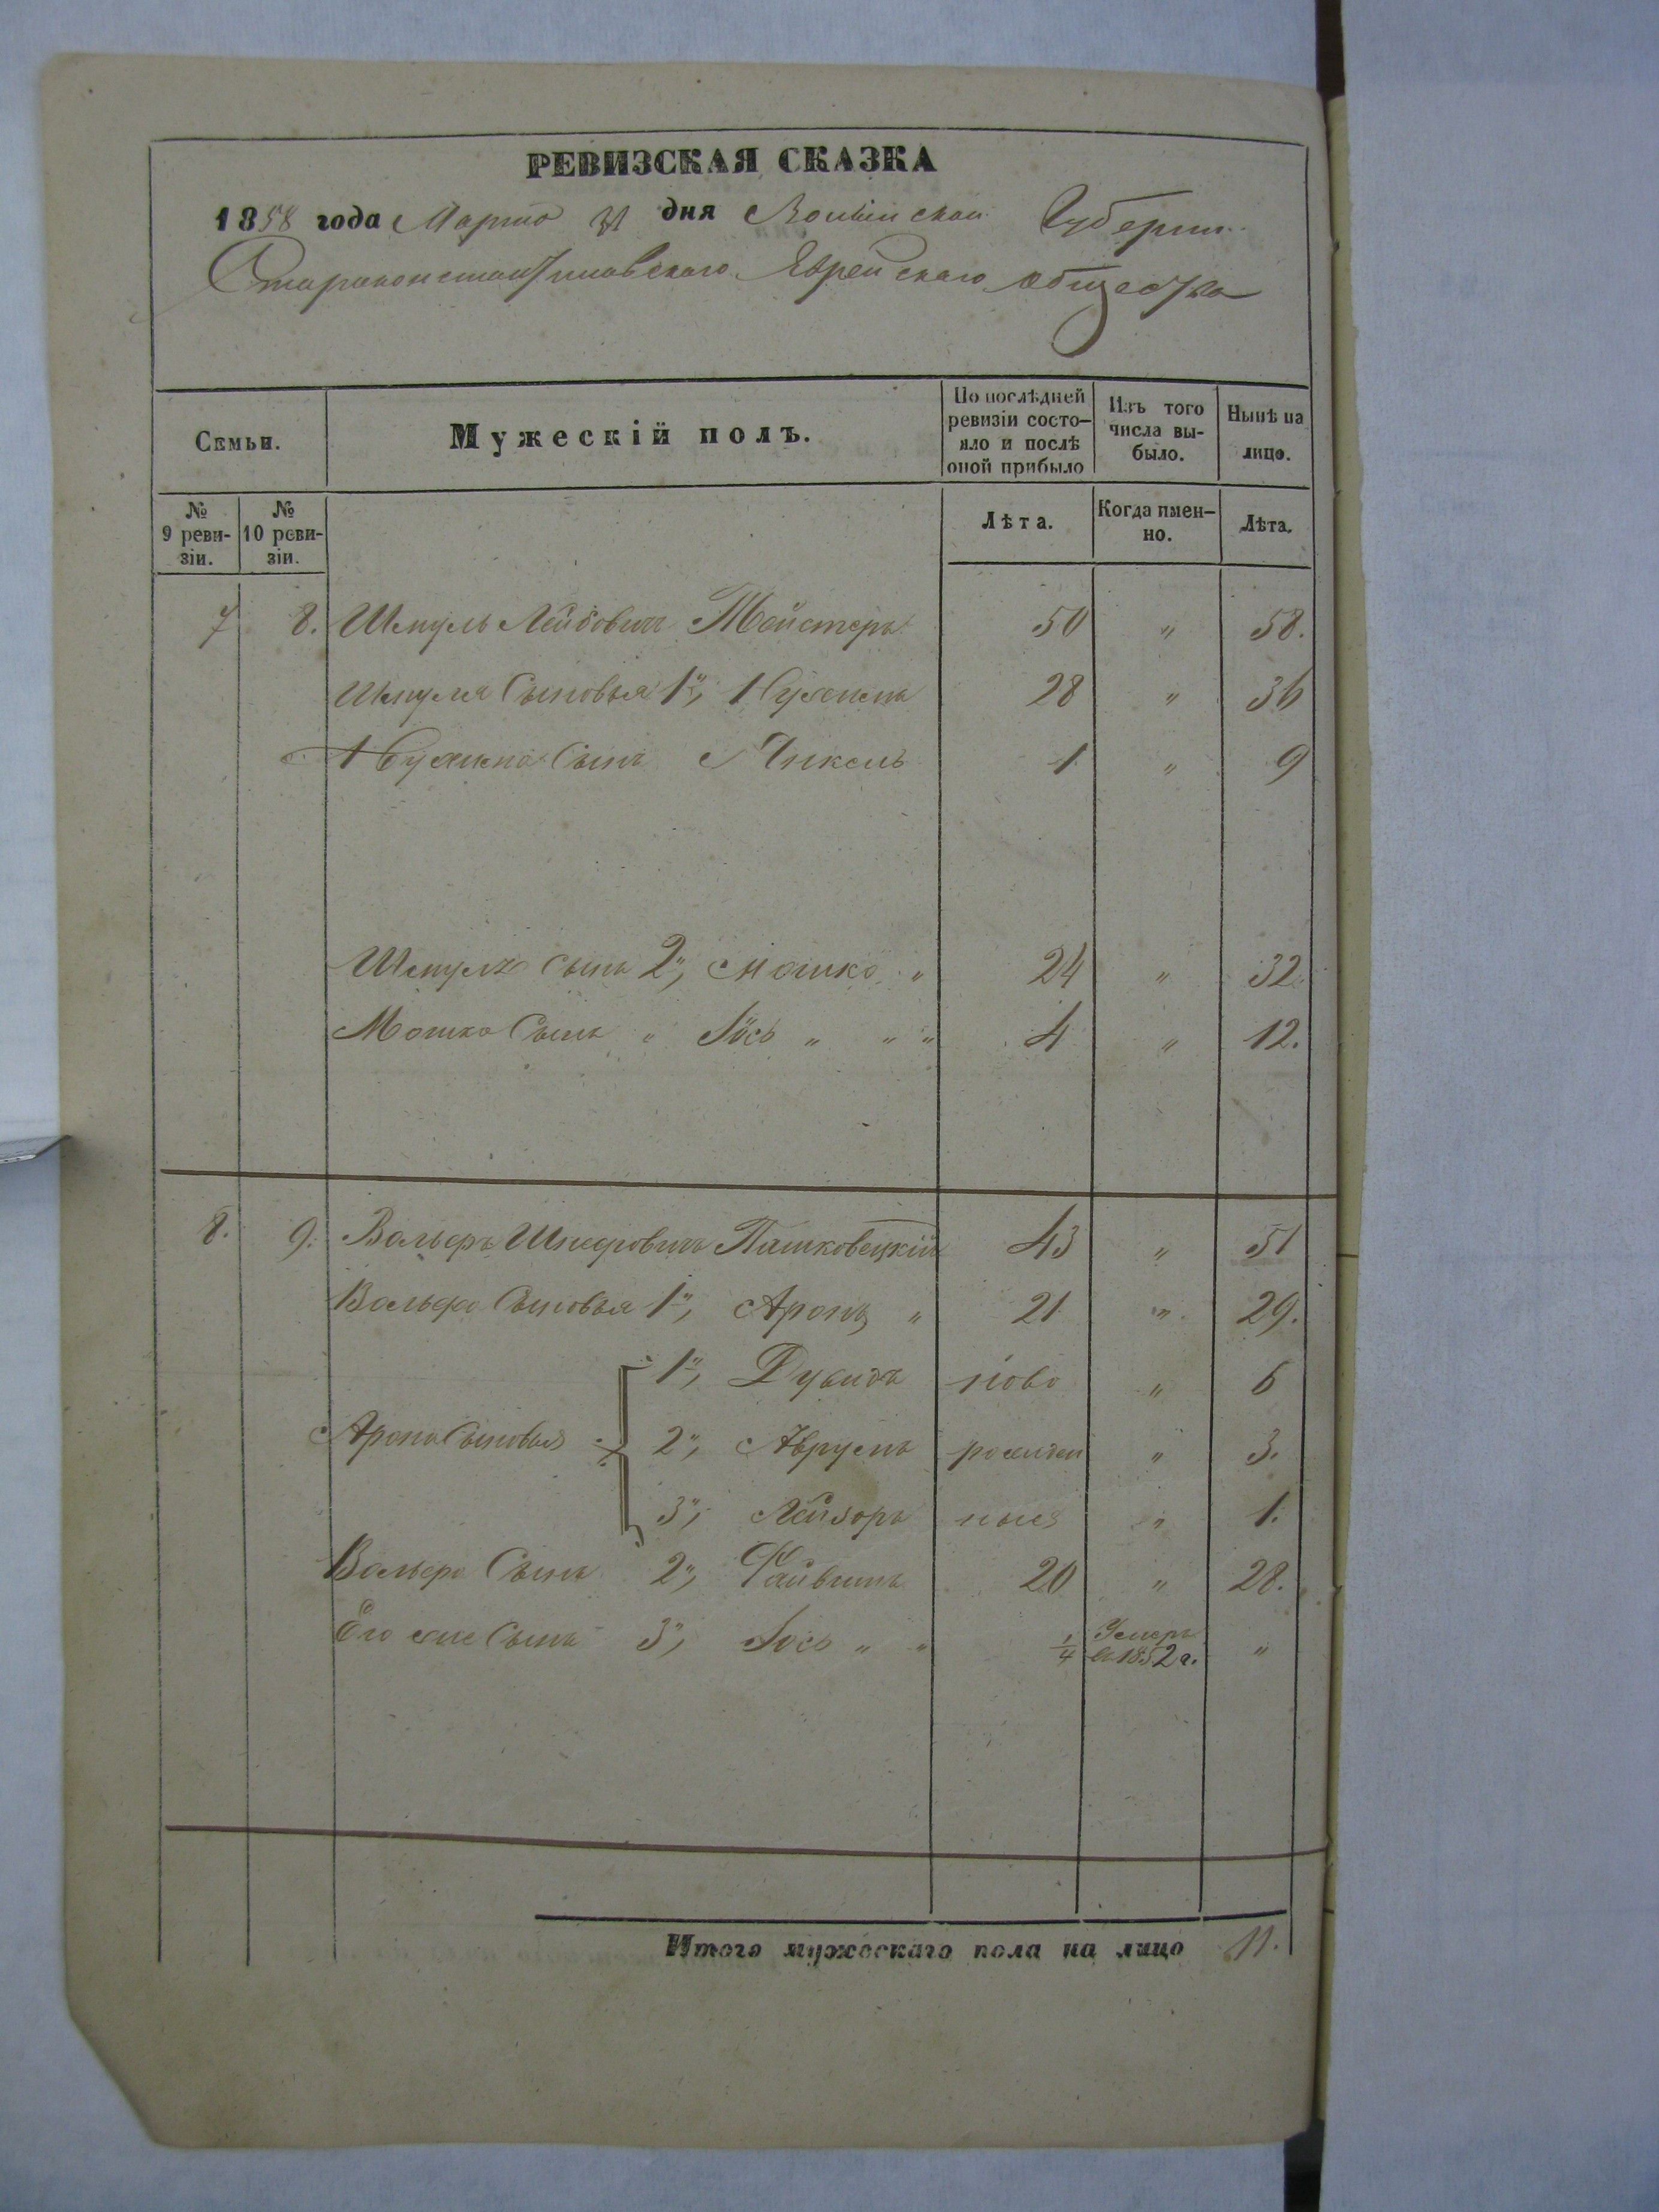 РЕВИЗСКАЯ СКАЗКА
1858 года Марта 31 дня Волынской Губернии
Староконстантиновскаго Еврейскаго общества
Семьи.
Мужескій полъ.
По послѣдней ревизіи состо-
яло и послѣ
оной прибыло
Изъ того
числа вы-
было.
Нынѣ на
лицо.
№
9 реви-
зіи.
№
10 реви-
зіи.
Лѣта.
Когда имен-
но.
Лѣта.
7 8. Шмуль Лейбовичъ Майстеръ 50 " 58.
Шмуля Сыновья 1й, Нухимъ 28 " 36
Нухима Сынъ 1 " 9
Шмуля Сынъ 2й, Мошко " 24 " 32.
Мошка Сынъ " Іось " " " 4 " 12.
8. 9. Вольфъ Шнеровичъ Пашковецкій 43 " 51
Вольфа Сыновья 1й, Аронъ " 21 " 29.
1й, Дувидъ ново " 6
Арона Сыновья 2й, Аврумъ рожден " 3.
3й, Лейзоръ ныя " 1.
Вольфа Сынъ 2й, Файвишъ 20 " 28.
Его же Сынъ 3й, Іось " " 1/4 Умеръ въ 1852 г. "
Итого мужескаго пола на лицо 11.